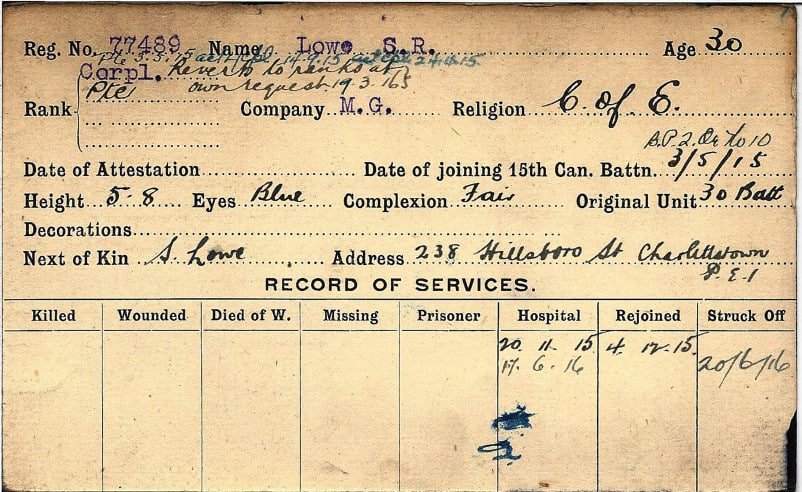 Reg. No. 77489 Name Lowe S.R. Age 30
Pte 3.5.15 14.9.15 24.11.15
Corpl. Reverts to ranks at
Pte own request 19.3.16
Rank Company M.G. Religion C. of E.
3/5/15
Date of Attestation Date of joining 15th Can. Battn.
Height 5-8 Eyes Blue Complexion Fair Original Unit 30 Batt
Decorations
Next of Kin S. Lowe Address 238 Hillsboro St Charlottetown
P.E.I
RECORD OF SERVICES.
Killed Wounded Died of W. Missing Prisoner Hospital Rejoined Struck Off
20 11 15 4 12 15
17 6 16 20/6/16